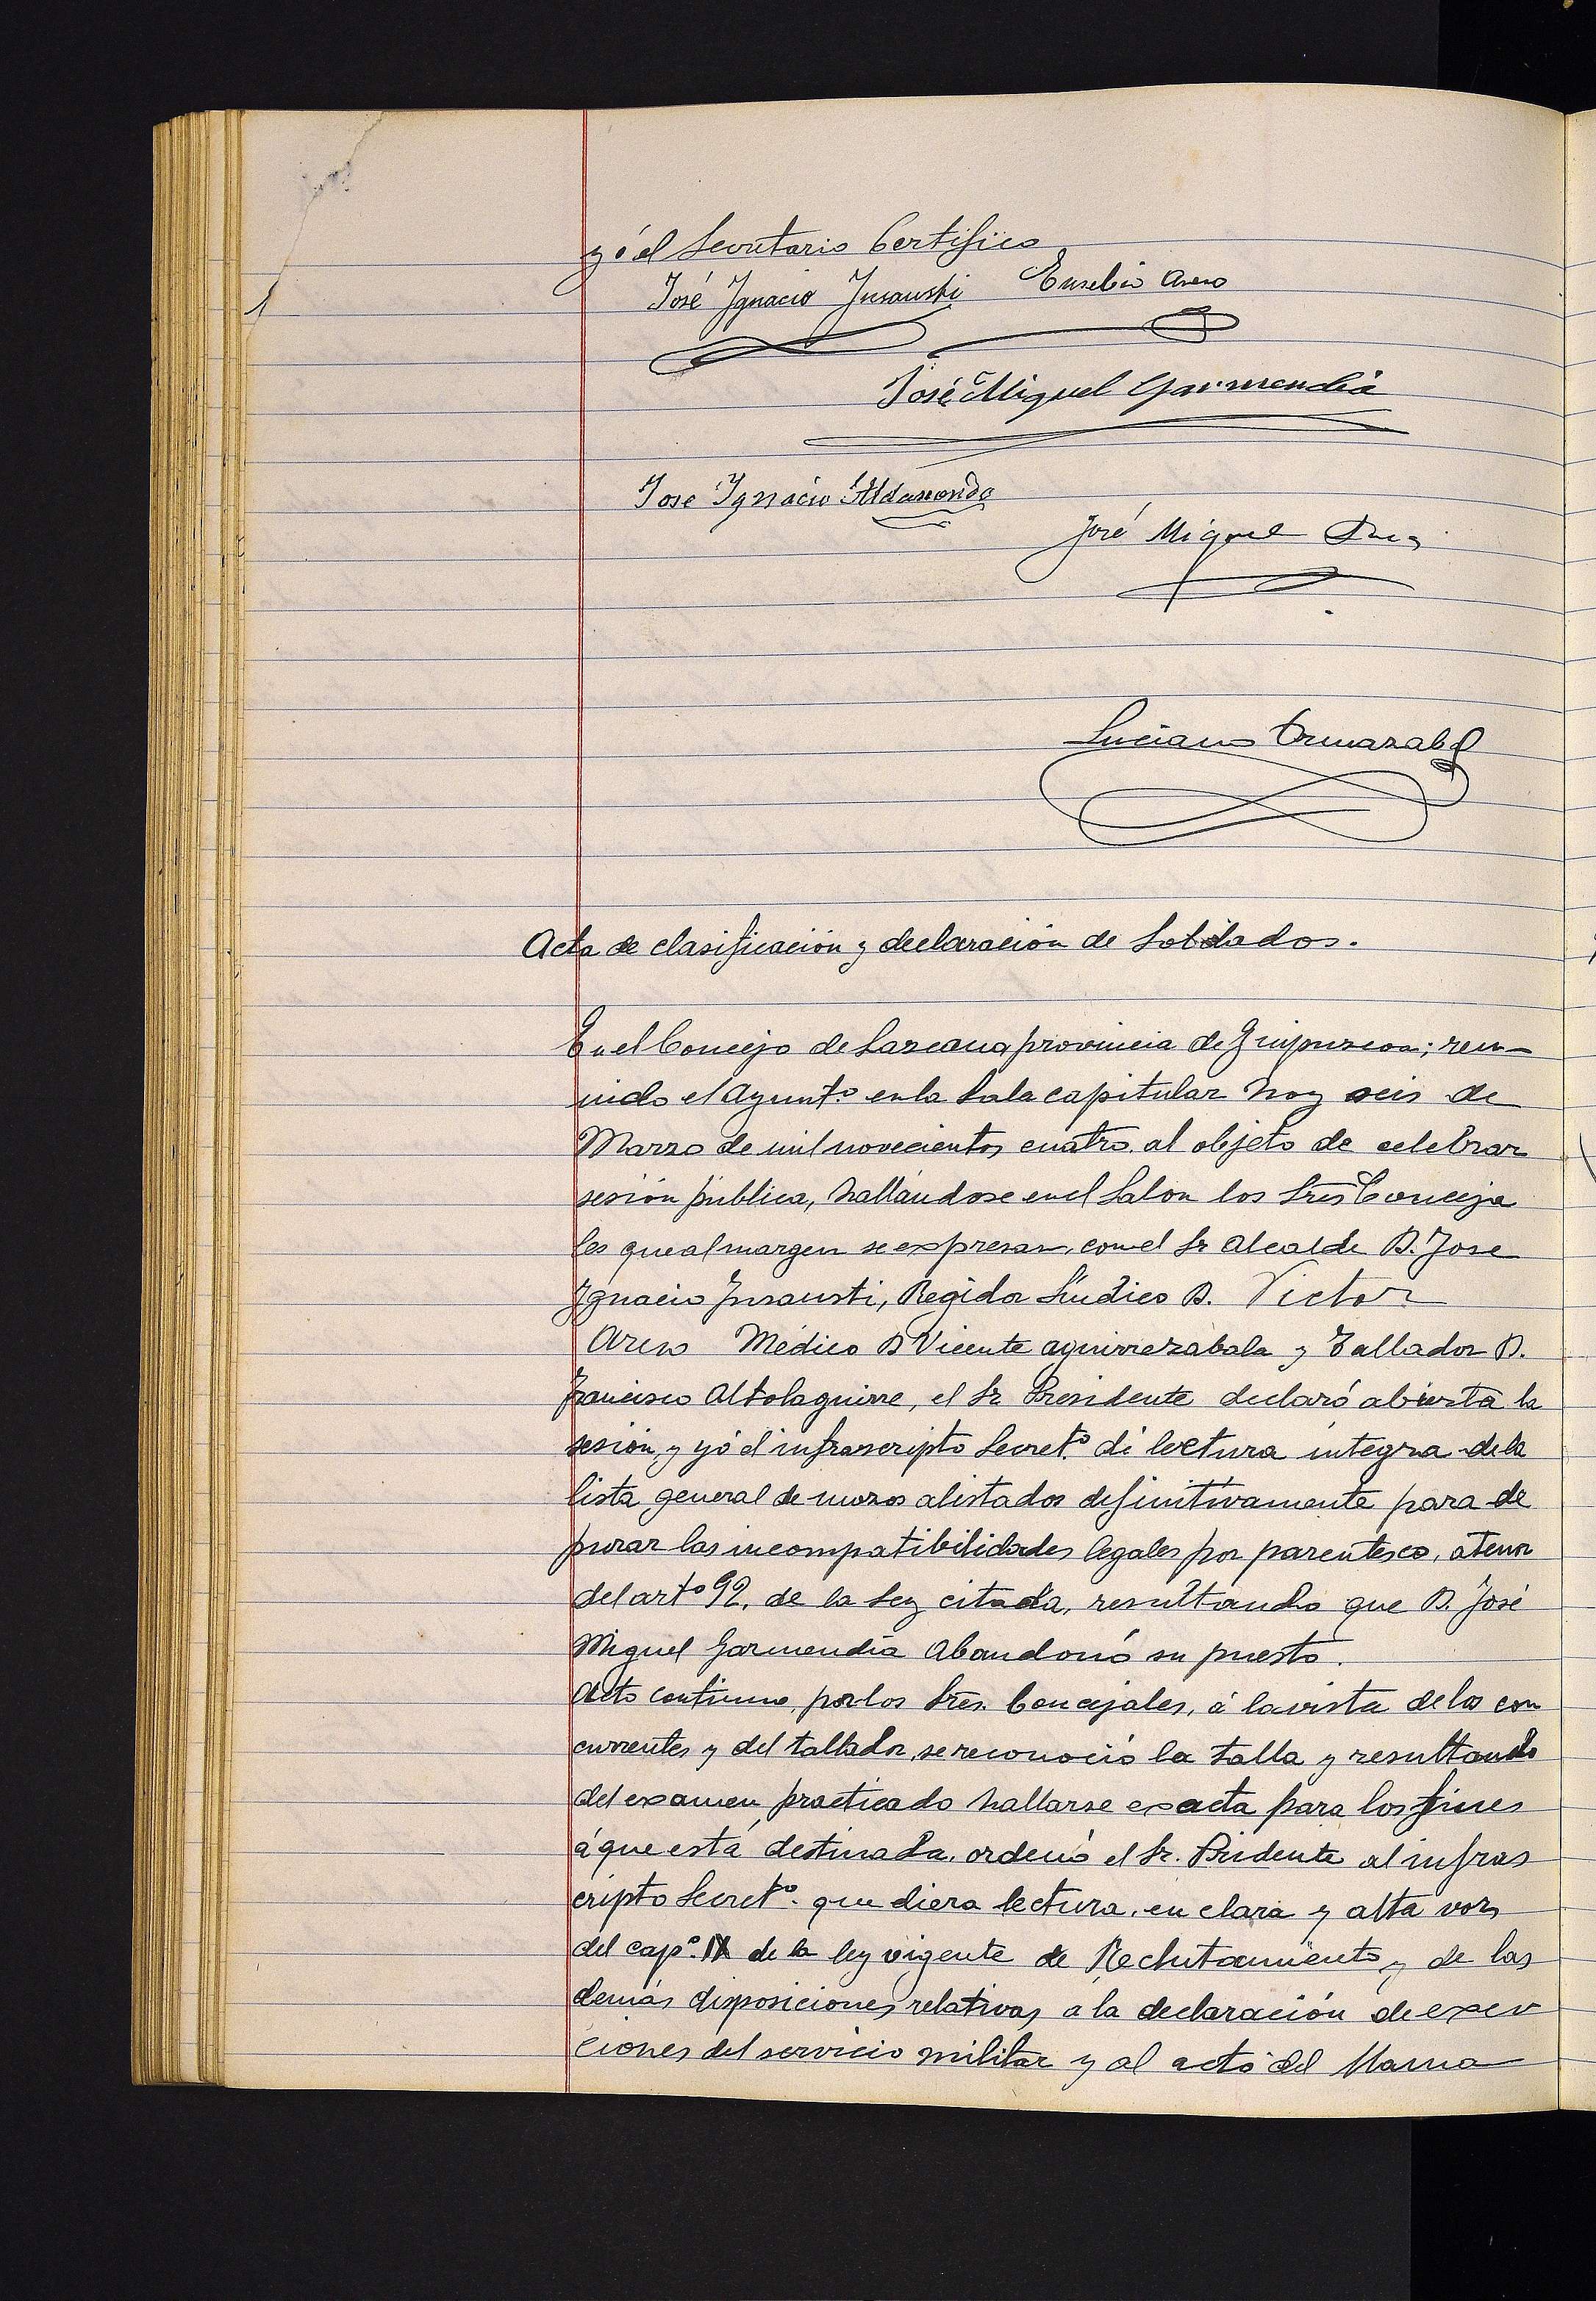 yó el Secretario Certifico
José Ygnacio Ynsausti Eusebio Areso
José Miguel Garmendia
Jose Ygnacio Aldasoro
José Miguel
Luciano Ormazabal
Acta de clasificación y declaración de Soldados.
En el Concejo de Lazcano, provincia de Guipuzcoa; reu-
nido el Ayuntº en la Sala capitular hoy seis de
Marzo de mil novecientos cuatro, al objeto de celebrar
sesión pública, hallándose en el Salon los Sres Conceja
les que al margen se expresan, con el Sr Alcalde D. Jose
Ygnacio Ynsausti, Regidor Síndico D. Victor
Areso Médico D Vicente aguirrezabala y Tallador D.
Francisco Altolaguirre, el Sr Presidente declaró abierta la
sesión, y yó el infrascripto Secretº di lectura integra de la
lista general de mozos alistados definitivamente para de
purar las incompatibilidades legales por parentesco, a tenor
del artº 92, de la Ley citada, resultando que D. José
Miguel Garmendia Abandonó su puesto.
Acto continuo, por los Sres. Concejales, á la vista de los con
currentes y del tallador, se reconoció la talla y resultando
del examen practicado hallarse exacta para los fines
á que está destinada, ordenó el Sr. Pridente al infras
cripto Secretº. que diera lectura, en clara y alta voz,
del capº. IX de la ley vigente de Reclutamiento y de las
demás disposiciones relativas a la declaración de exen
ciones del servicio militar y al acto del llama